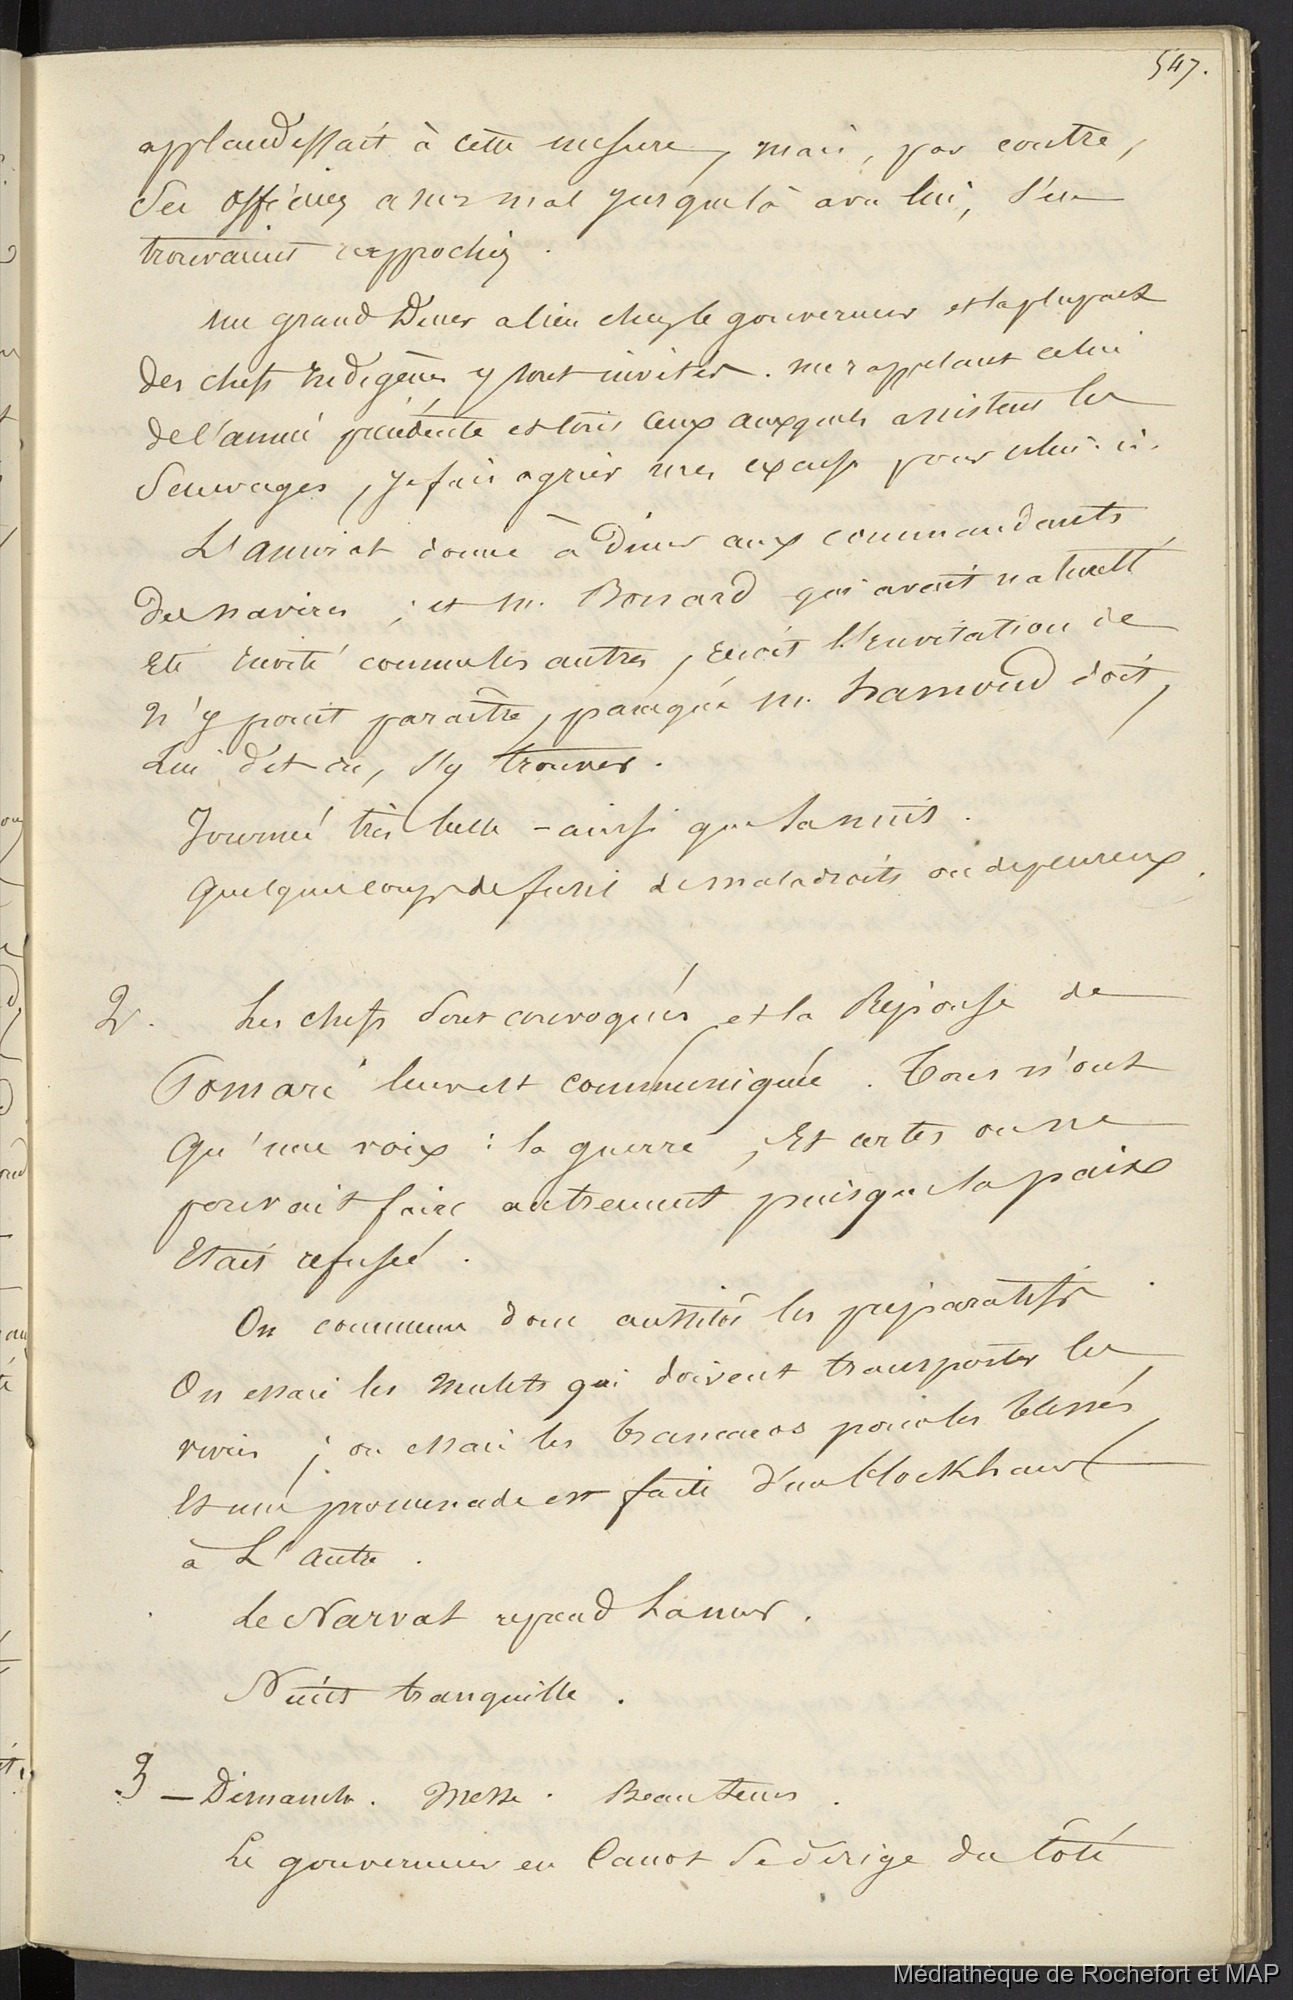 547.
applaudissait à cette mesure, mais, par contre,
Ses officiers assez mal jusque là avec lui, s'en
trouvaient rapprochés.
un grand Diner a lieu chez le gouverneur et la plupart
des chefs indigènes y sont invités. me rappelant celui
de l'année précédente et tous ceux auxquels assistent les
Sauvages, je fais agréer mes excuses pour celui-ci.
L'amiral donne à Diner aux commandants
des navires; et M. Bonard qui avait naturellt
été invité comme les autres, reçoit l'invitation de
n'y point paraître, parceque M. hamond doit,
Lui dit on, s'y trouver.
Journée très belle - ainsi que la nuit.
Quelques coups de fusil de maladroits ou de peureux.
2. Les chefs sont convoqués et la Réponse de
Pomaré leur est communiquée. Tous n'ont
qu'une voix : la guerre, Et certes on ne
pouvait faire autrement puisque la paix
Etait refusée.
On commence donc aussitôt les préparatifs.
On essaie les mulets qui doivent transporter les
vivres; on essaie les brancards pour les blessés,
Et une promenade est faite d'un blockhaus
à L'autre.
Le Narval reprend La mer.
Nuit tranquille.
3 — Dimanche. Messe. Beau tems.
Le gouverneur en Canot se dirige du Côté
Médiathèque de Rochefort et MAP